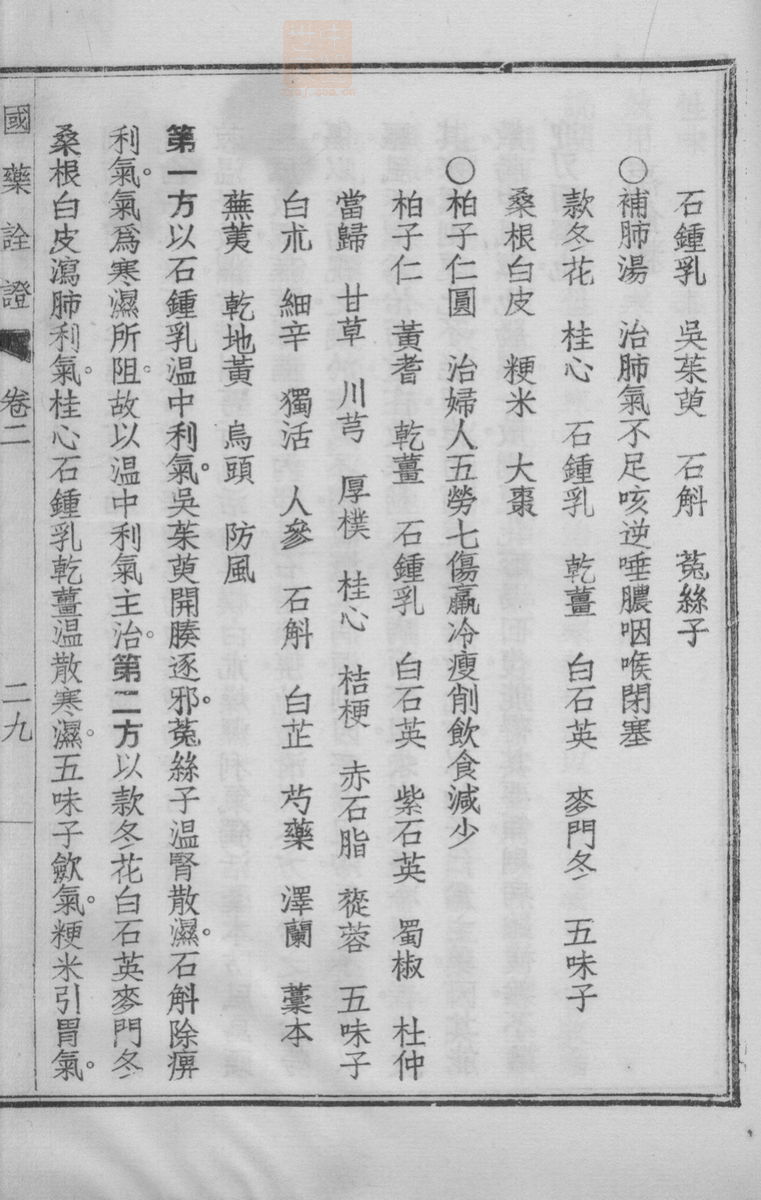 石鍾乳　吳茱萸　石斛　菟絲子
〇補肺湯　治肺氣不足咳逆唾膿咽喉閉塞
款冬花　桂心　石鍾乳　乾薑　白石英　麥門冬　五味子
桑根白皮　粳米　大棗
〇柏子仁圓　治婦人五勞七傷羸冷瘦削飲食減少
柏子仁　黃耆　乾薑　石鍾乳　白石英　紫石英　蜀椒　杜仲
當歸　甘草　川芎　厚樸　桂心　桔梗　赤石脂　蓯蓉　五味子
白朮　細辛　獨活　人參　石斛　白芷　芍藥　澤蘭　藁本
蕪荑　乾地黃　烏頭　防風
第一方以石鍾乳温中利氣。吳茱萸開腠逐邪。菟絲子温腎散濕。石斛除痹
利氣。氣爲寒濕所阻。故以温中利氣主治。第二方以款冬花白石英麥門冬
桑根白皮瀉肺利氣。桂心石鍾乳乾薑温散寒濕。五味子歛氣。粳米引胃氣。
國藥詮證　卷二　二九